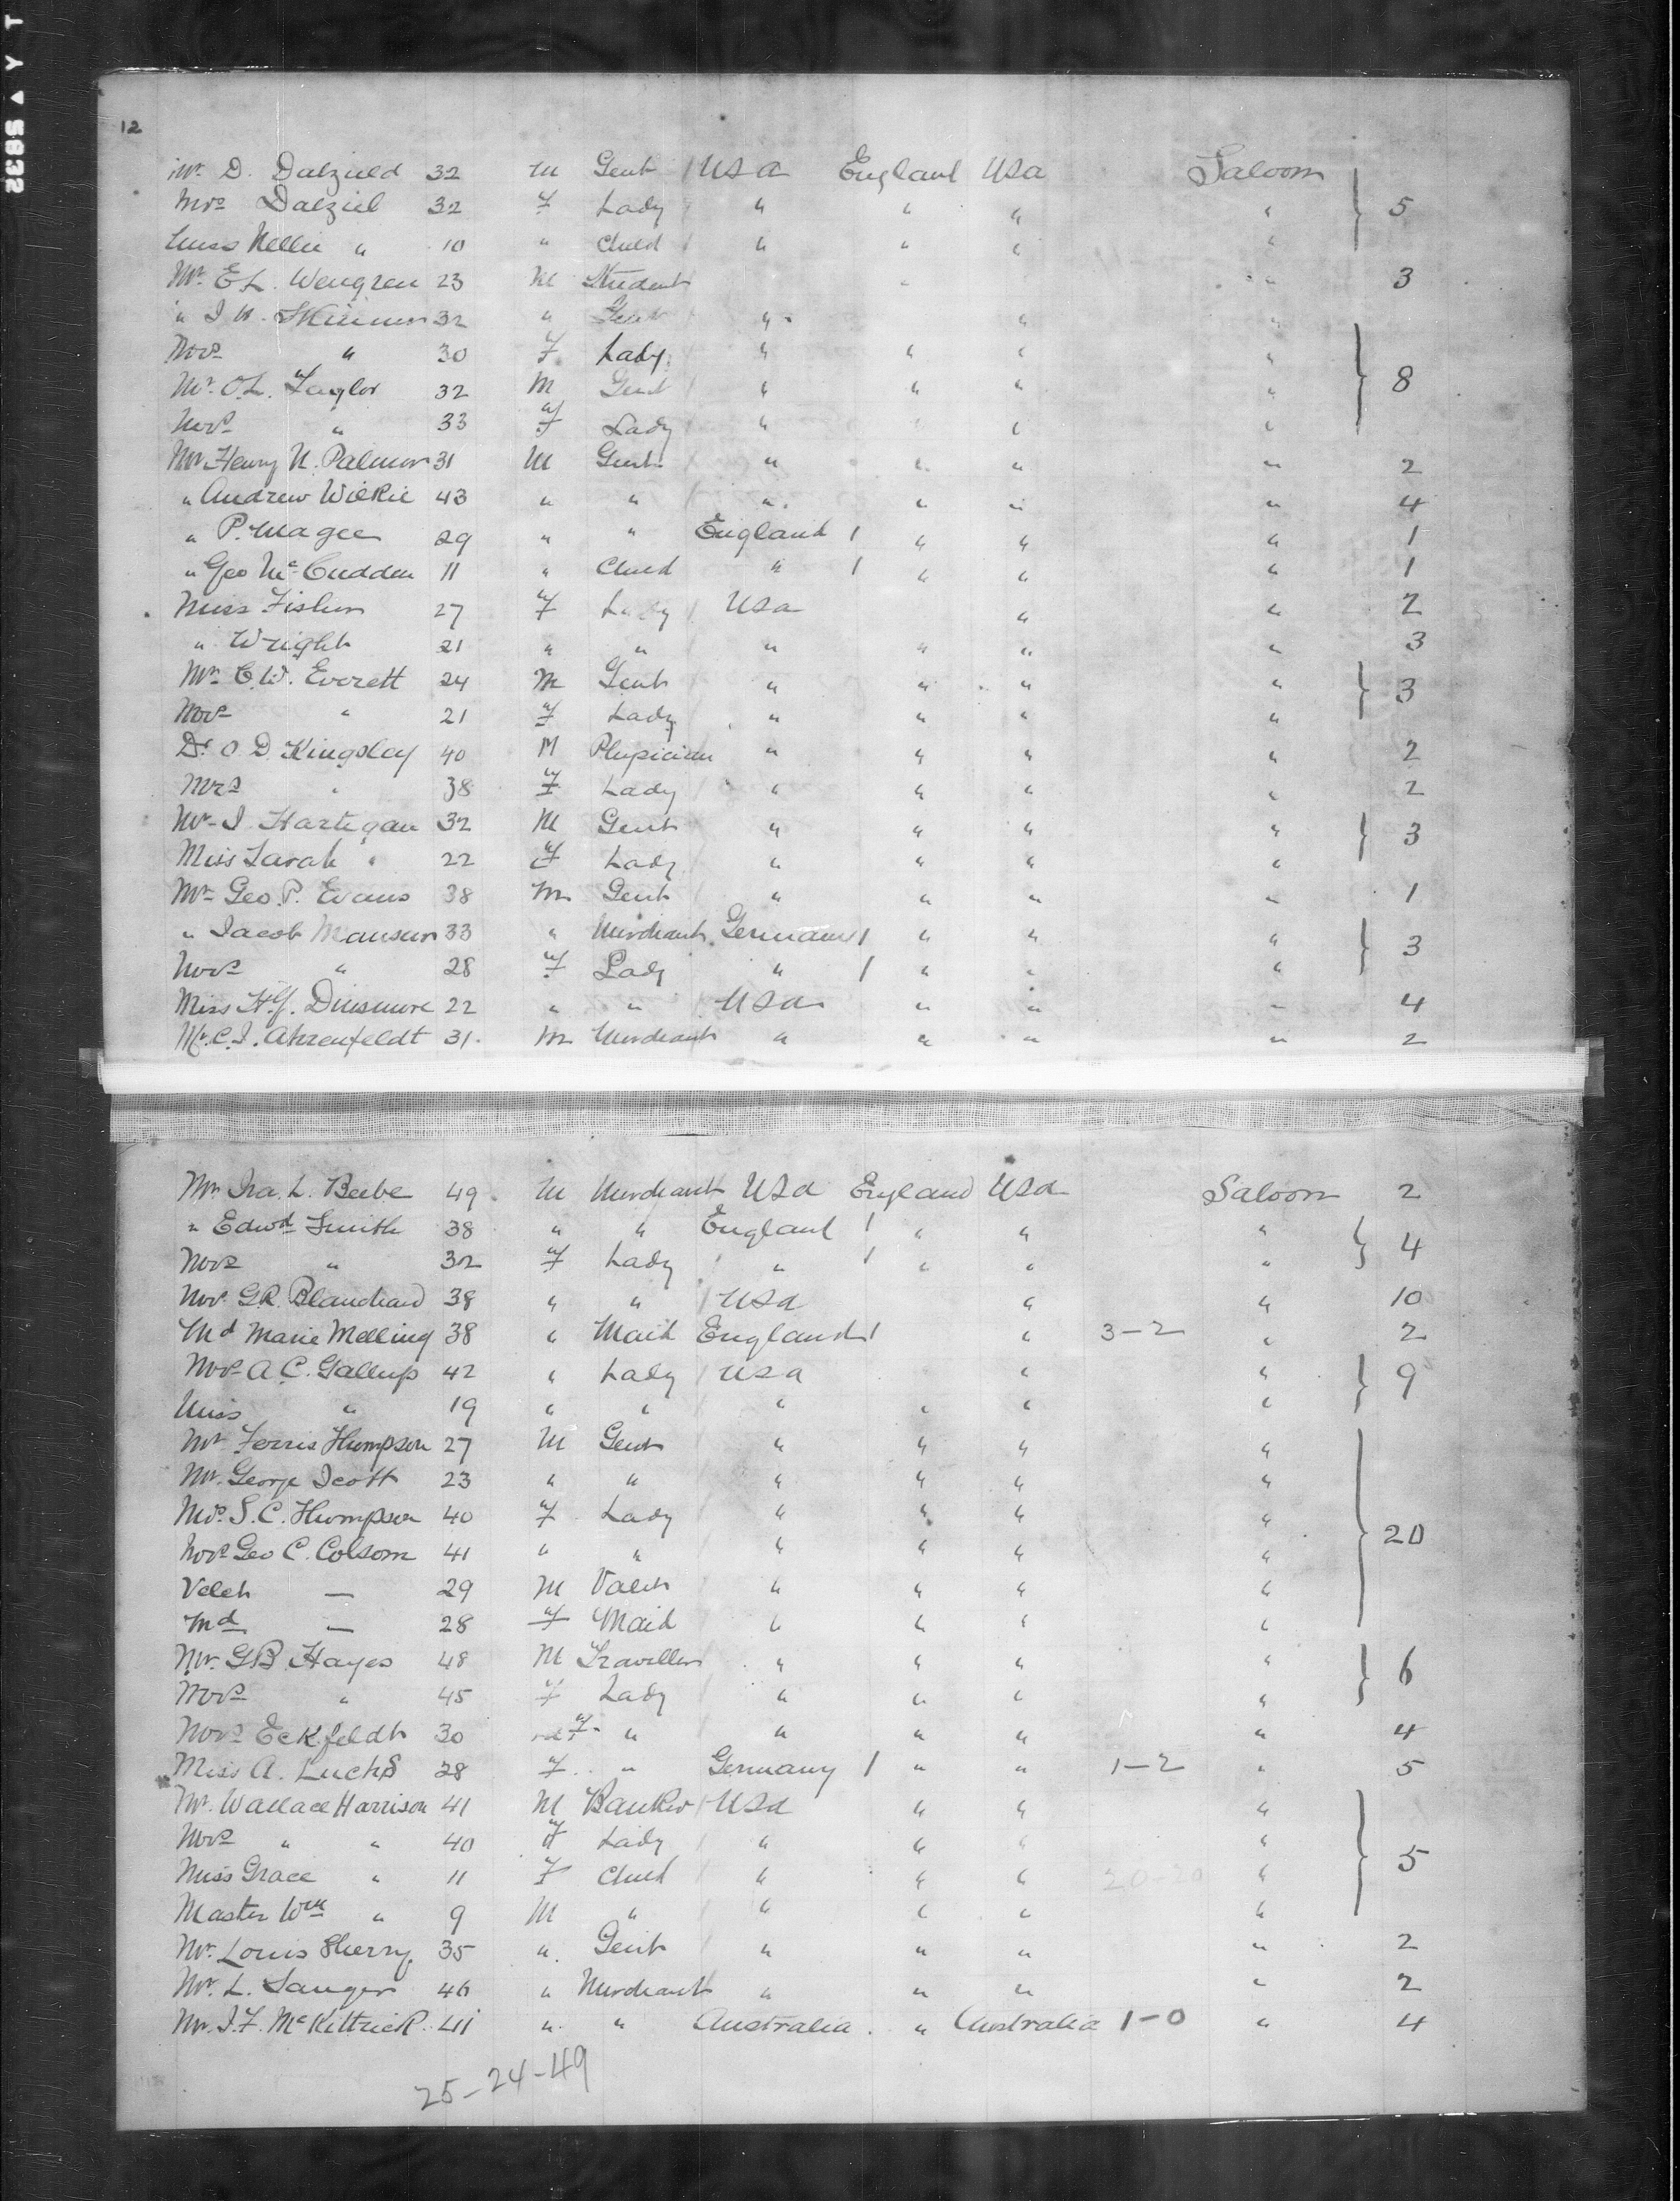 12
Mr. D. Dalzield 32 M Gent USA England USA Saloom
Mrs Dalziel 32 F Lady " " " " 5
Miss Nellie " 10 " Child " " " "
Mr. E L. Wengren 23 M Student " " 3
" J. H. Skinner 32 " Gent " " "
Mrs " 30 F. Lady " " " "
Mr. O.L. Taylor 32 M Gent " " " " 8
Mrs " 33 F Lady " " "
Mr Henry N. Palmer 31 M Gent " " " " 2
" Andrew Wilkie 43 " " " " " " 4
" P. Magee 29 " " England 1 " " " 1
" Geo McCudden 11 " Child " 1 " " " 1
Miss Fisher 27 F Lady USA " " 2
" Wright 21 " " " " " " 3
Mr. C.W. Everett 24 M Gent " " " " 3
Mrs " 21 F Lady " " " "
Dr O D Kingsley 40 M Physician " " " " 2
Mrs " 38 F Lady " " " " 2
Mr. J. Hartigan 32 M Gent " " " " 3
Miss Sarah " 22 F Lady " " " "
Mr Geo. P. Evans 38 M Gent " " " " 1
" Jacob Manseur 33 " Merchant Germany 1 " " " 3
Mrs " 28 F Lady " 1 " " "
Miss H.Y. Dinsmore 22 " " USA " " " 4
Mr. C. J. Ahrenfeldt 31. M Merchant " " " " 2
Mr Ira. L. Beebe 49. M Merchant USA England USA Saloom 2
" Edwd Smith 38 " " England 1 " " " 4
Mrs " 32 F Lady " 1 " " "
Mrs. G.R. Blanchard 38 " " USA " " 10
Md Marie Melling 38 " Maid England 1 " 3-2 " 2
Mrs A. C. Gallup 42 " Lady USA " " 9
Miss " 19 " " " " " "
Mr Ferris Thompson 27 M Gent " " " "
Mr. George Scott 23 " " " " " "
Mrs. S. C. Thompson 40 F Lady " " " " 20
Mrs Geo C. Colsom 41 " " " " " "
Velet — 29 M Valet " " " "
Md — 28 F Maid " " " "
Mr. G B Hayes 48 M Traveller " " " " 6
Mrs " 45 F Lady " " " "
Mrs Eckfeldt 30 F " " " " " 4
Miss A. Luchs 28 F " Germany 1 " " 1-2 " 5
Mr. Wallace Harrison 41 M Banker USA " " "
Mrs " " 40 F Lady " " " " 5
Miss Grace " 11 F Child " " " 20-20 "
Master Wm " 9 M " " " " "
Mr. Louis Sherry 35 " Gent " " " " 2
Mr. L. Sanger 46 " Merchant " " " " 2
Mr. J. F. McKittrick 41 " " Australia " Australia 1-0 " 4
25-24-49